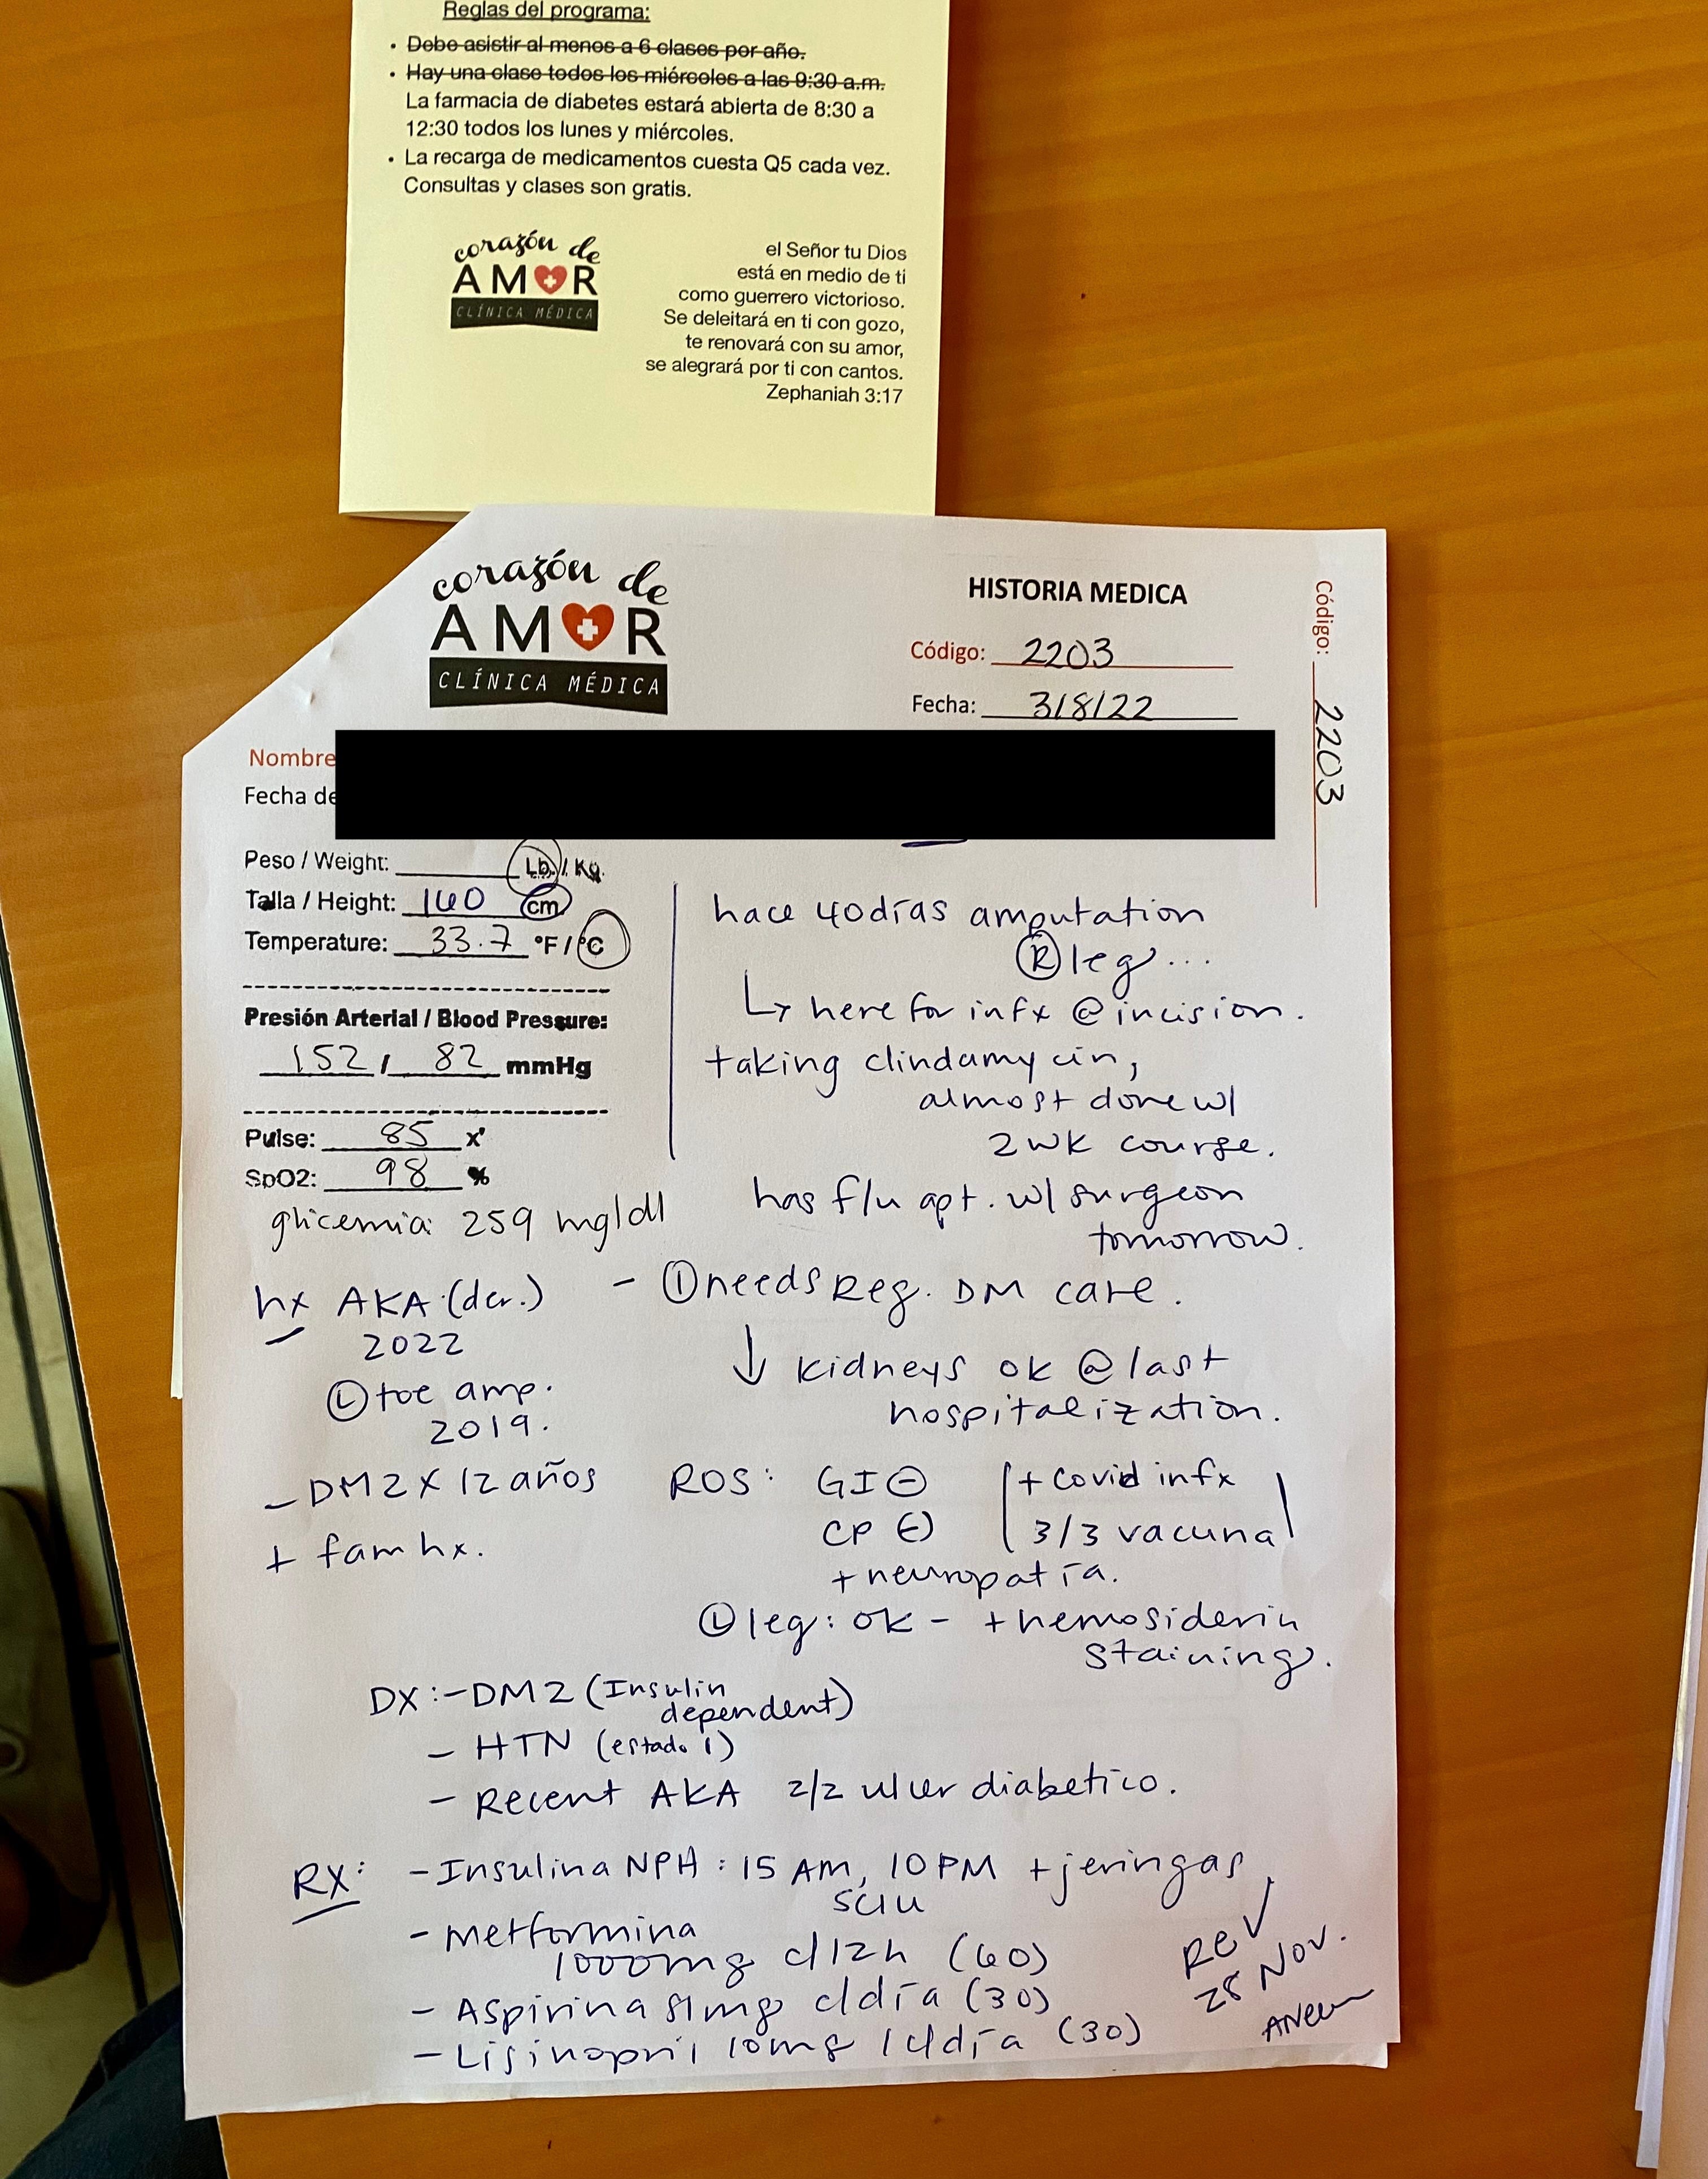 Reglas del programa:
• Debe asistir al menos a 6 clases por año.
• Hay una clase todos los miércoles a las 9:30 a.m.
La farmacia de diabetes estará abierta de 8:30 a
12:30 todos los lunes y miércoles.
• La recarga de medicamentos cuesta Q5 cada vez.
Consultas y clases son gratis.
corazón de
AMOR
CLÍNICA MÉDICA
el Señor tu Dios
está en medio de ti
como guerrero victorioso.
Se deleitará en ti con gozo,
te renovará con su amor,
se alegrará por ti con cantos.
Zephaniah 3:17
corazón de
AMOR
CLÍNICA MÉDICA
HISTORIA MEDICA
Código: 2203
Fecha: 3/8/22
Código: 2203
Nombre
Fecha de
Peso / Weight: Lb / Kg.
Talla / Height: 160 cm
Temperature: 33.7 °F / °C
Presión Arterial / Blood Pressure:
152 / 82 mmHg
Pulse: 85 x'
SpO2: 98 %
glicemia: 259 mg/dl
hace 40 días amputation
(R) leg...
↳ here for infx @ incision.
taking clindamycin,
almost done w/
2 wk course.
has f/u apt. w/ surgeon
tomorrow.
hx AKA (der.)
2022
(L) toe amp.
2019.
- DM2 x 12 años
+ fam hx.
- (1) needs Reg. DM care.
↓ kidneys ok @ last
hospitalization.
ROS: GI (-)
CP (-)
+ neuropatía.
+ covid infx
3/3 vacuna
(L) leg: ok - + hemosiderin
staining.
DX: - DM2 (Insulin
dependent)
- HTN (estado 1)
- Recent AKA 2/2 ulcer diabetico.
RX: - Insulina NPH: 15 AM, 10 PM + jeringas
sciu
- Metformina
1000mg c/12h (60)
- Aspirina 81mg c/día (30)
- Lisinopril 10mg 1 c/día (30)
Rev
28 Nov.